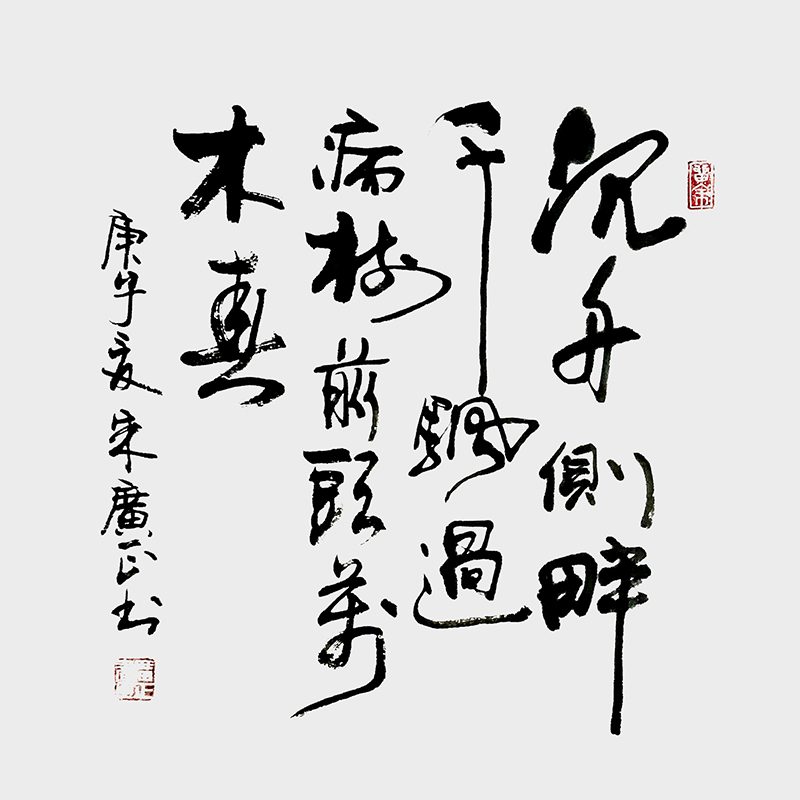 沉舟側畔
千颿過
病樹前頭萬
木春
庚午夏宋廣正書